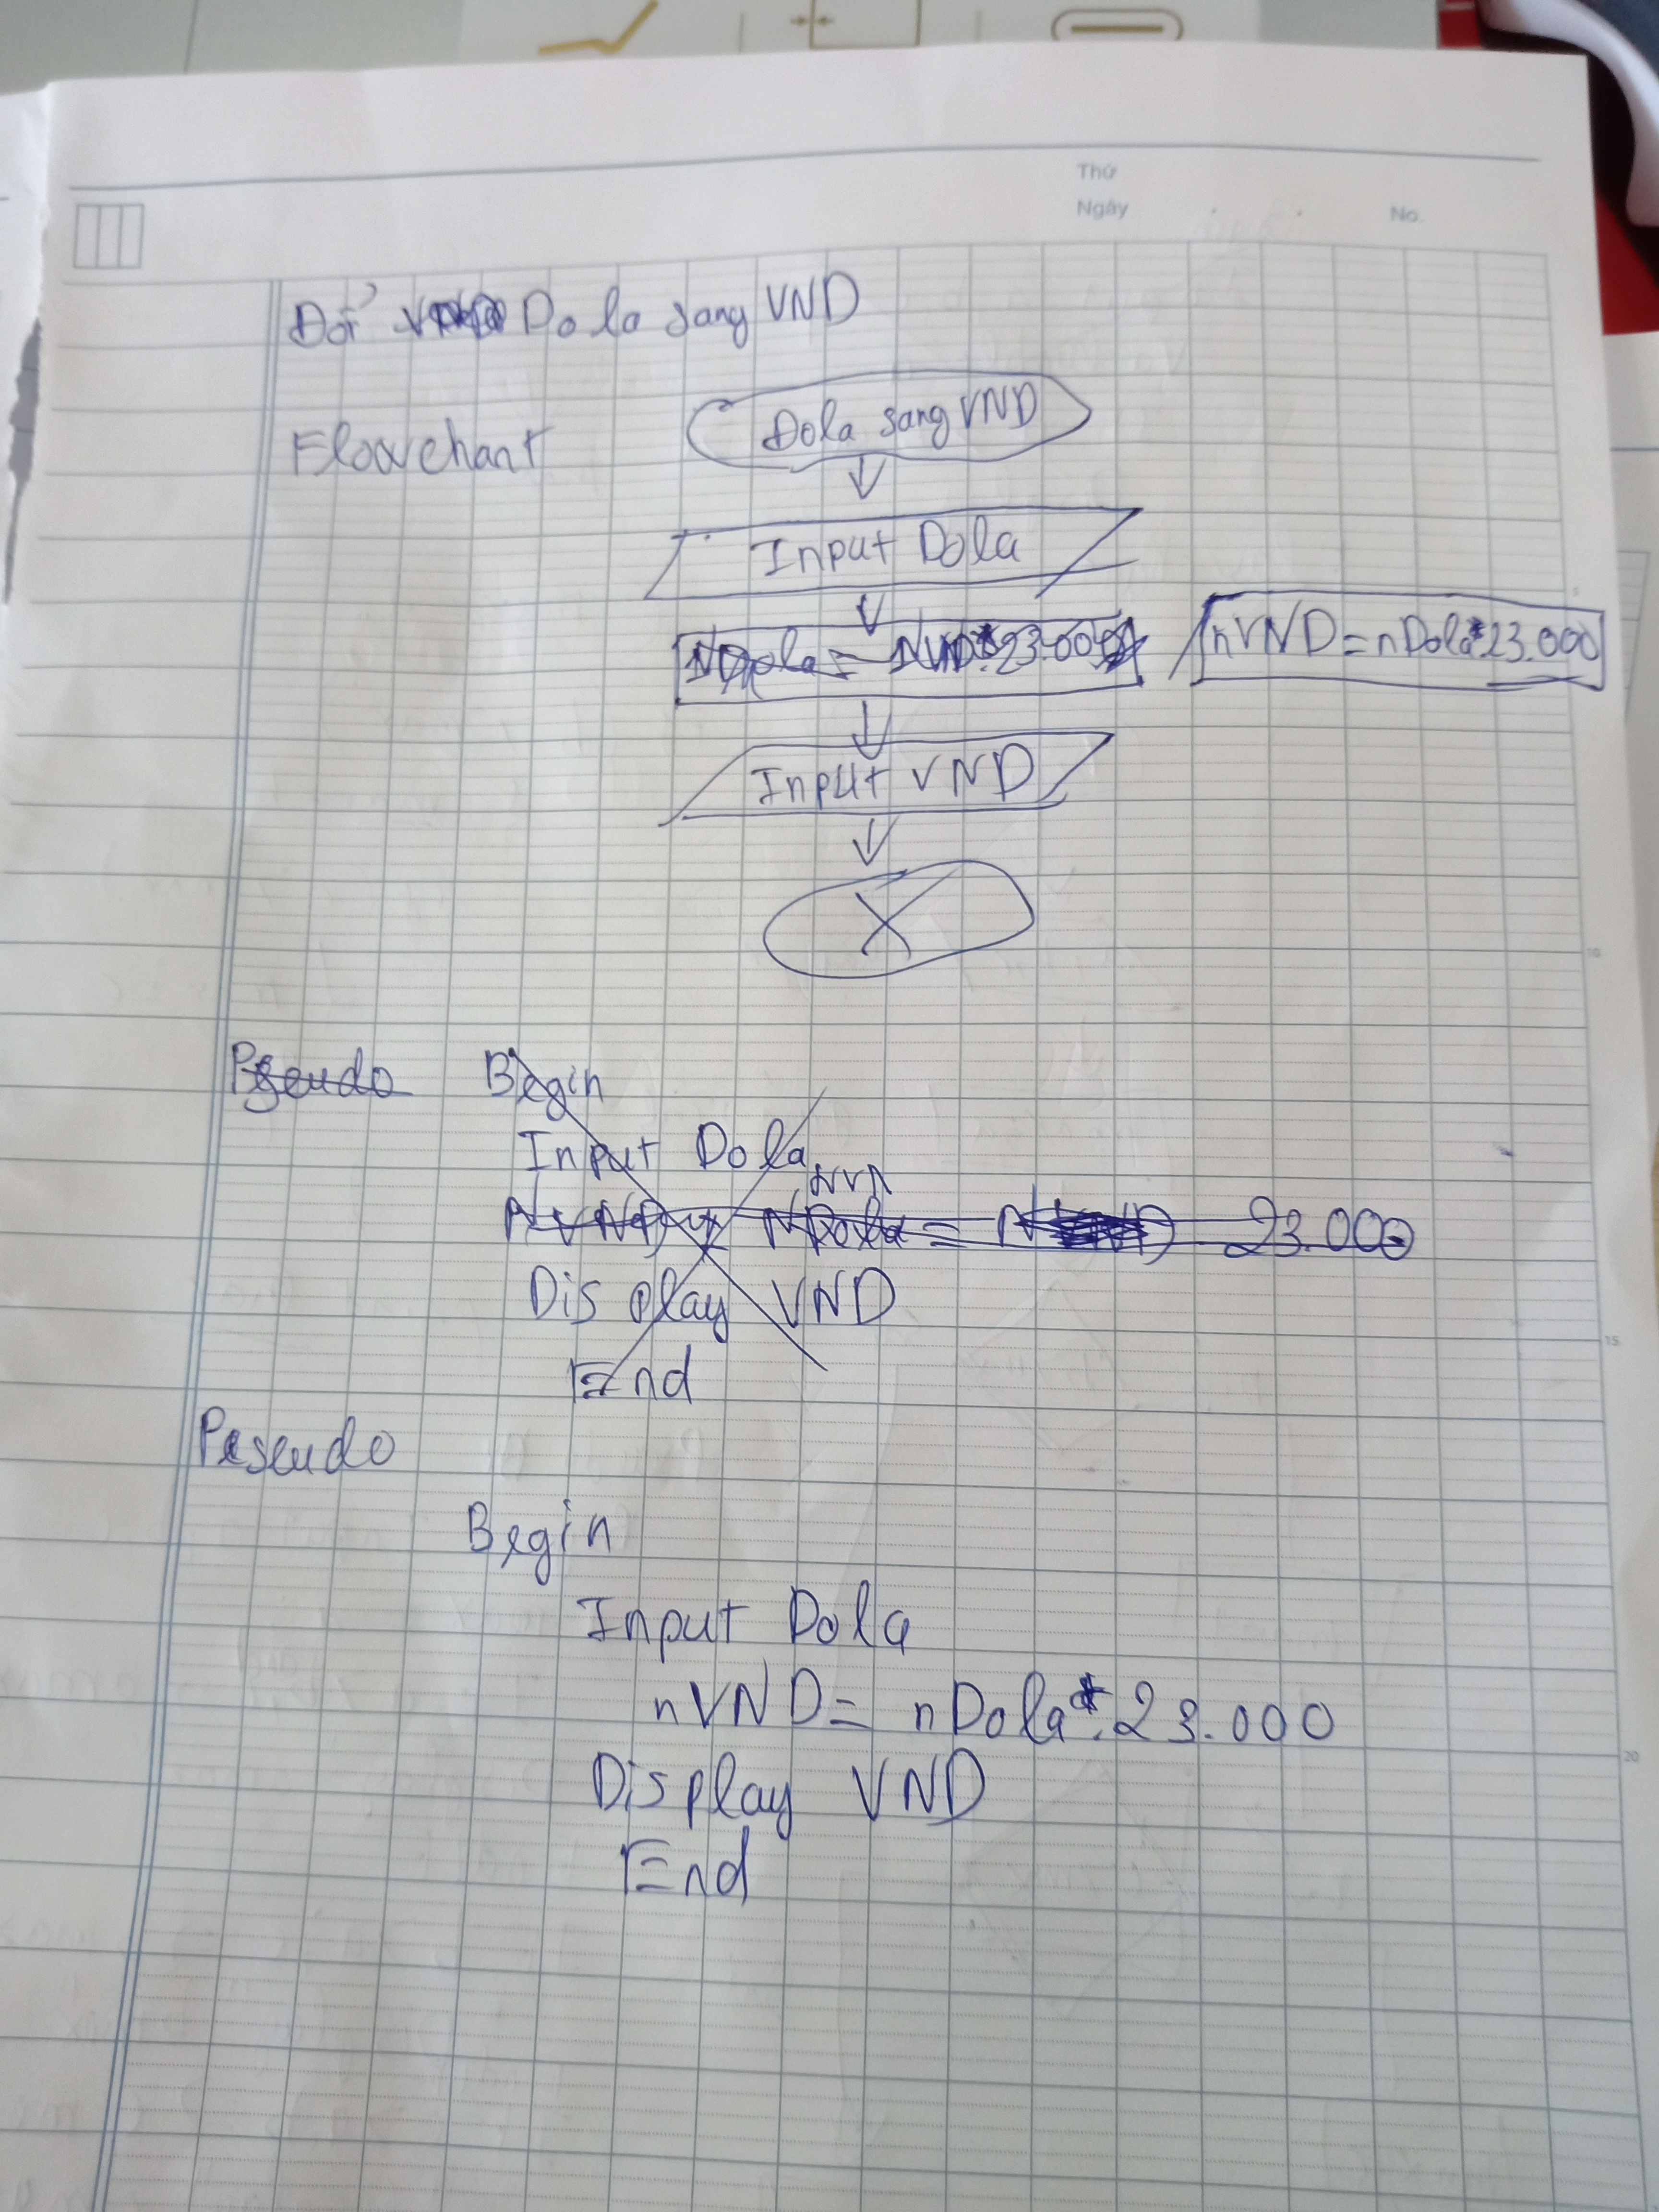 Thứ
Ngày No.
Đổi Dola sang VND
Flowchart
Dola sang VND
Input Dola
NDola = NVND*23.000
nVND = nDola*23.000
Input VND
X
Pseudo Begin
Input Dola
NVND NDola = 23.000
Display VND
End
Pseudo
Begin
Input Dola
nVND = nDola*.23.000
Display VND
End